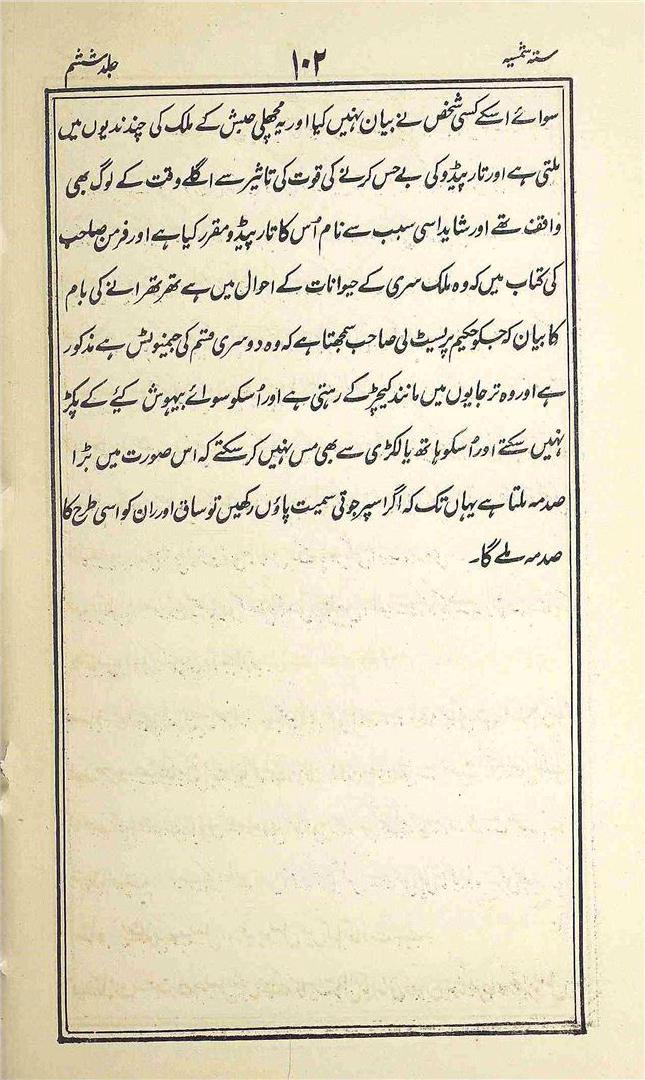 ستہ شمسیہ ۱۰۲ جلد ششم
سوائے اسکے کسی شخص نے بیان نہیں کیا اور یہ مچھلی حبش کے ملک کی چند ندیوں میں
ملتی ہے اور تارپیڈو کی بے حس کرنے کی قوت کی تاثیر سے اگلے وقت کے لوگ بھی
واقف تھے اور شاید اسی سبب سے نام اُس کا تارپیڈو مقرر کیا ہے اور فرمن صاحب
کی کتاب میں کہ وہ ملک سری کے حیوانات کے احوال میں ہے تھرتھرانے کی بام
کا بیان کہ جسکو حکیم پریسٹ لی صاحب سمجھتا ہے کہ وہ دوسری قسم کی جمنوٹس ہے مذکور
ہے اور وہ تر جایوں میں مانند کیچڑ کے رہتی ہے اور اُسکو سوائے بیہوش کیئے کے پکڑ
نہیں سکتے اور اُسکو ہاتھ یا لکڑی سے بھی مس نہیں کر سکتے کہ اس صورت میں بڑا
صدمہ ملتا ہے یہاں تک کہ اگر اسپر جوتی سمیت پاؤں رکھیں تو ساق اور ران کو اسی طرح کا
صدمہ ملے گا۔